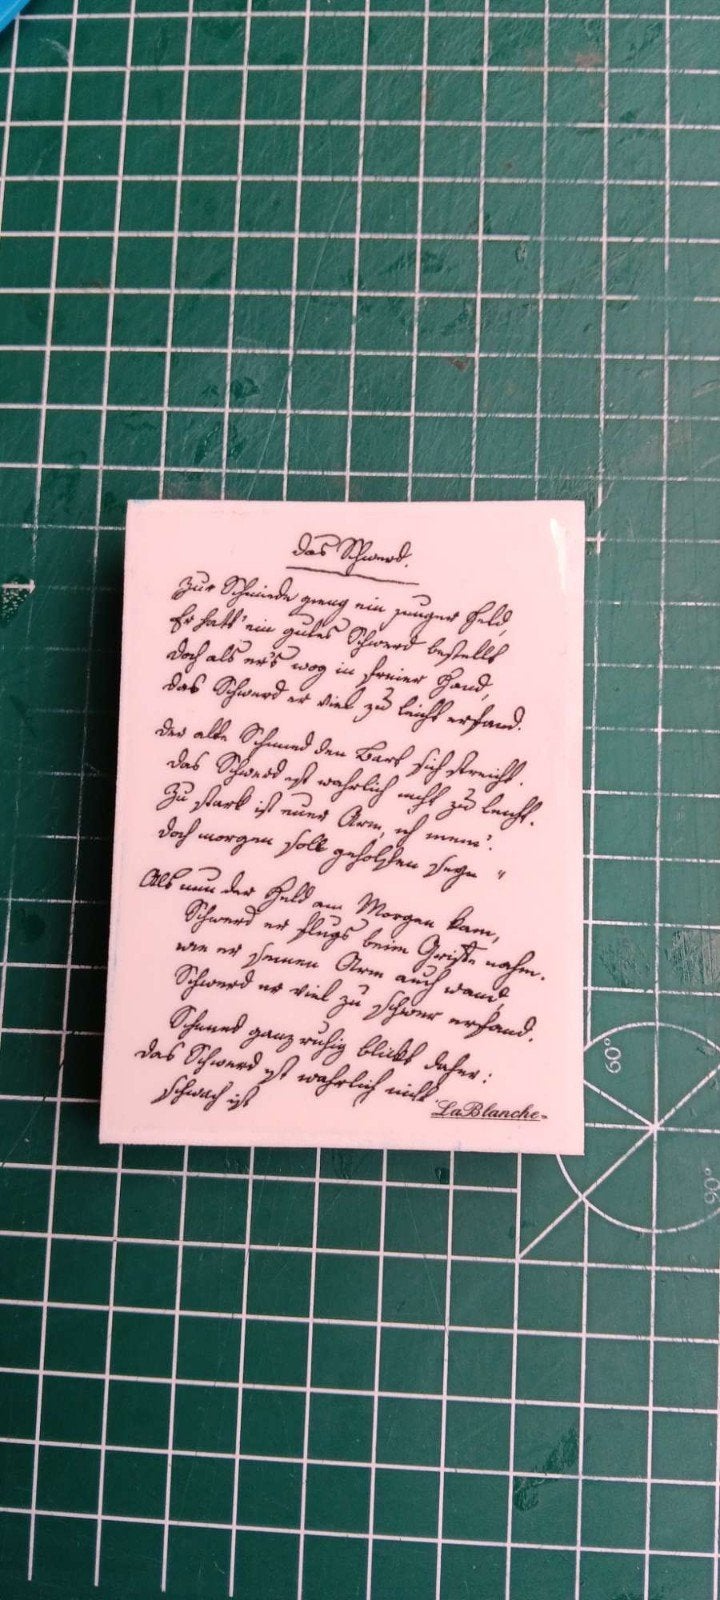 Das Schwerd.
Zur Schmiede gieng ein junger Held,
Er hatt' ein gutes Schwerd bestellt
Doch als er's wog in freier Hand,
Das Schwerd er viel zu leicht erfand.
Der alte Schmied den Bart sich streicht.
Das Schwerd ist wahrlich nicht zu leicht.
Zu stark ist euer Arm, ich mein'.
Doch morgen soll geholfen seyn "
Als nun der Held am Morgen kam,
Schwerd er flugs beim Griffe nahm.
wie er seinen Arm auch wand,
Schwerd er viel zu schwer erfand.
Schmied ganz ruhig blickt daher:
Das Schwerd ist wahrlich nicht
schwach ist
LaBlanche
60°
90°